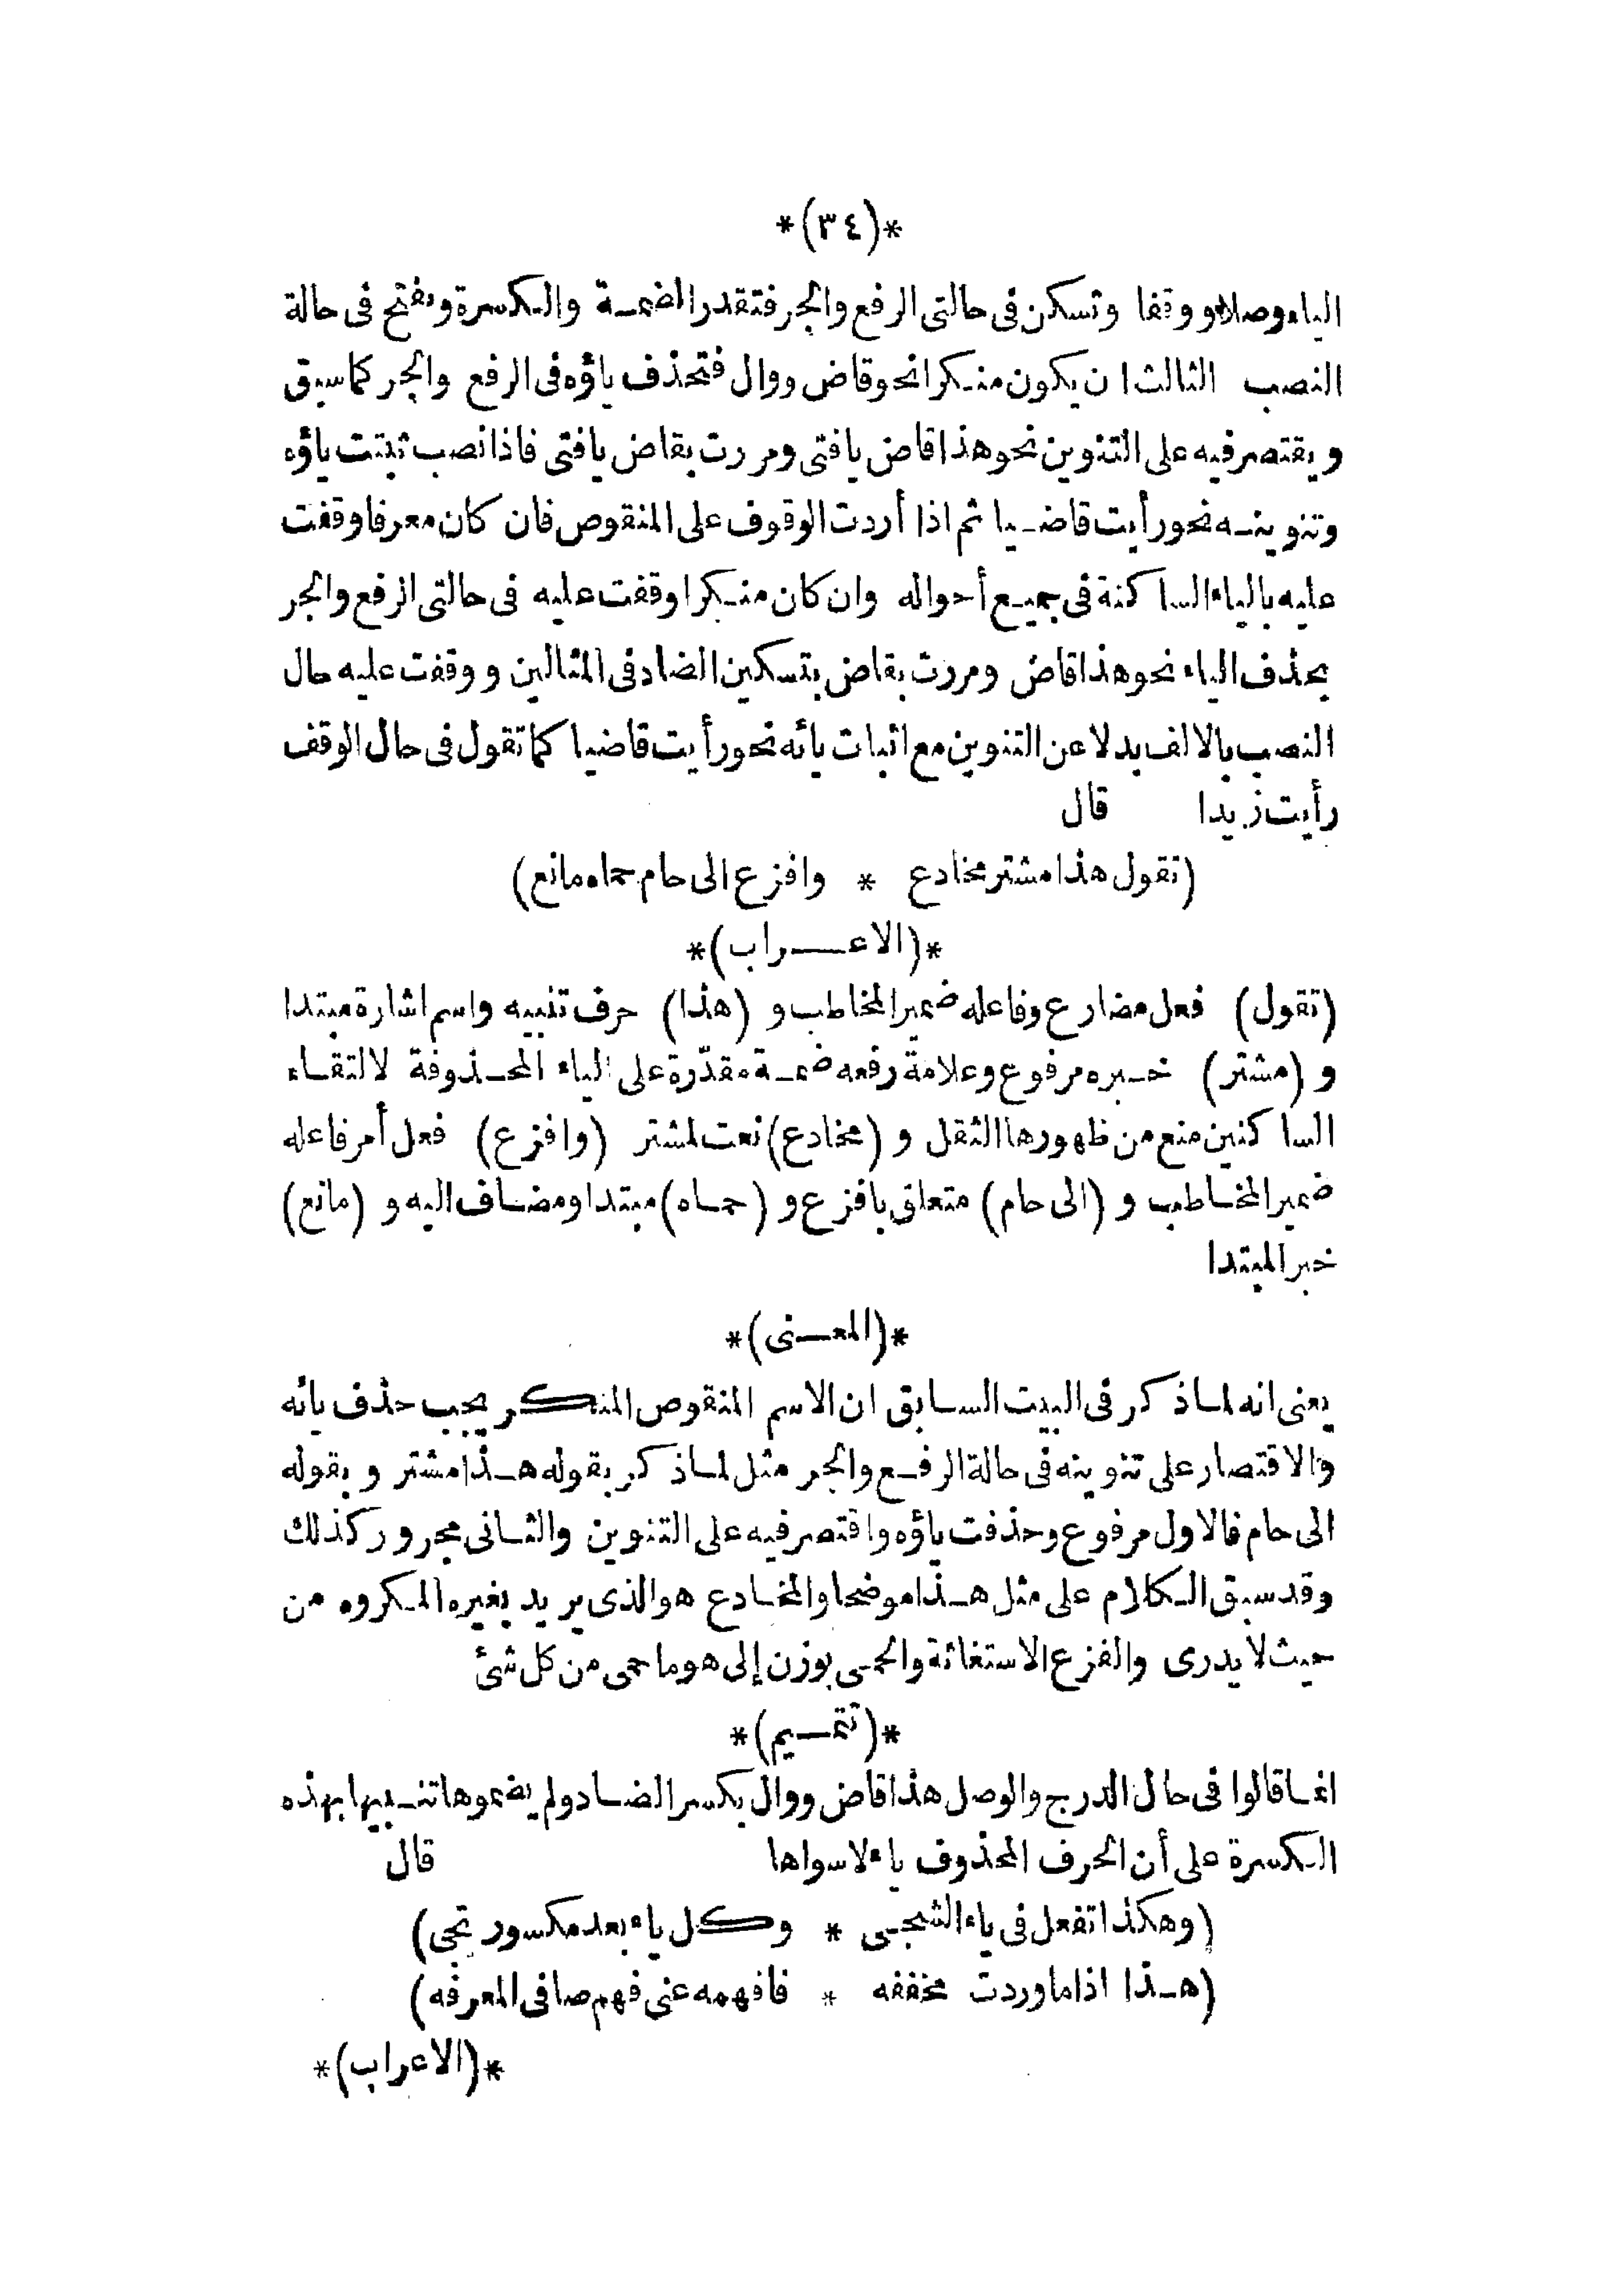 *(٣٤)*
الياء وصلا ووقفا وتسكن فى حالتى الرفع والجر فتقدر الضمـة والـكسرة وتفتح فى حالة
النصب الثالث ان يكون منـكرا نحو قاض ووال فتحذف ياؤه فى الرفع والجر كما سبق
ويقتصر فيه على التنوين نحو هذا قاض يا فتى ومررت بقاض يا فتى فاذا نصب ثبتت ياؤه
وتنوينـه نحو رأيت قاضـيا ثم اذا أردت الوقوف على المنقوص فان كان معرفا وقفت
عليه بالياء الساكنة فى جميـع أحواله وان كان منـكرا وقفت عليه فى حالتى الرفع والجر
بحذف الياء نحو هذا قاض ومررت بقاض بتسكين الضاد فى المثالين ووقفت عليه حال
النصب بالالف بدلا عن التنوين مع اثبات يائه نحو رأيت قاضيا كما تقول فى حال الوقف
رأيت زيدا قال
(تقول هذا مشتر مخادع * وافزع الى حام حماه مانع)
*(الاعـــراب)*
(تقول) فعل مضارع وفاعله ضمير المخاطب و (هذا) حرف تنبيه واسم اشارة مبتدا
و (مشتر) خـبره مرفوع وعلامة رفعه ضمـة مقدّرة على الياء المحـذوفة لالتقاء
الساكنين منع من ظهورها الثقل و (مخادع) نعت لمشتر (وافزع) فعل أمر فاعله
ضمير المخـاطب و (الى حام) متعلق بافزع و (حمـاه) مبتدا ومضـاف اليه و (مانع)
خبر المبتدا
*(المعـنى)*
يعنى انه لمـا ذكر فى البيت السـابق ان الاسم المنقوص المنكر يجب حذف يائه
والاقتصار على تنوينه فى حالة الرفـع والجر مثل لمـا ذكر بقوله هـذا مشتر وبقوله
الى حام فالاول مرفوع وحذفت ياؤه واقتصر فيه على التنوين والثـانى مجرور كذلك
وقد سبق الـكلام على مثل هـذا موضحا والمخـادع هو الذى يريد بغيره المـكروه من
حيث لا يدرى والفزع الاستغاثة والحمـى بوزن إلى هو ما حمى من كل شئ
*(تتمـيم)*
انمـا قالوا فى حال الدرج والوصل هذا قاض ووال بكسر الضـاد ولم يضموها تنـبيها بهذه
الـكسرة على أن الحرف المحذوف ياء لا سواها قال
(وهكذا تفعل فى ياء الشجـى * وكل ياء بعد مكسور تجى)
(هـذا اذا ما وردت مخففه * فافهمه عنى فهم صافى المعرفه)
*(الاعراب)*